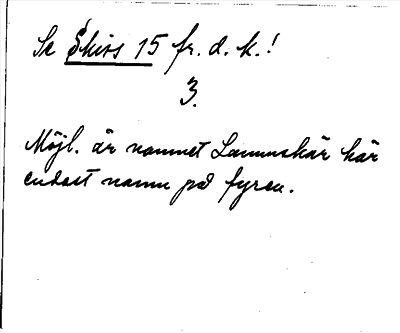 Se Skivs 15 fr. d. k.!
3.
Möjl. är namnet Lammskär här
endast namn på fyren.